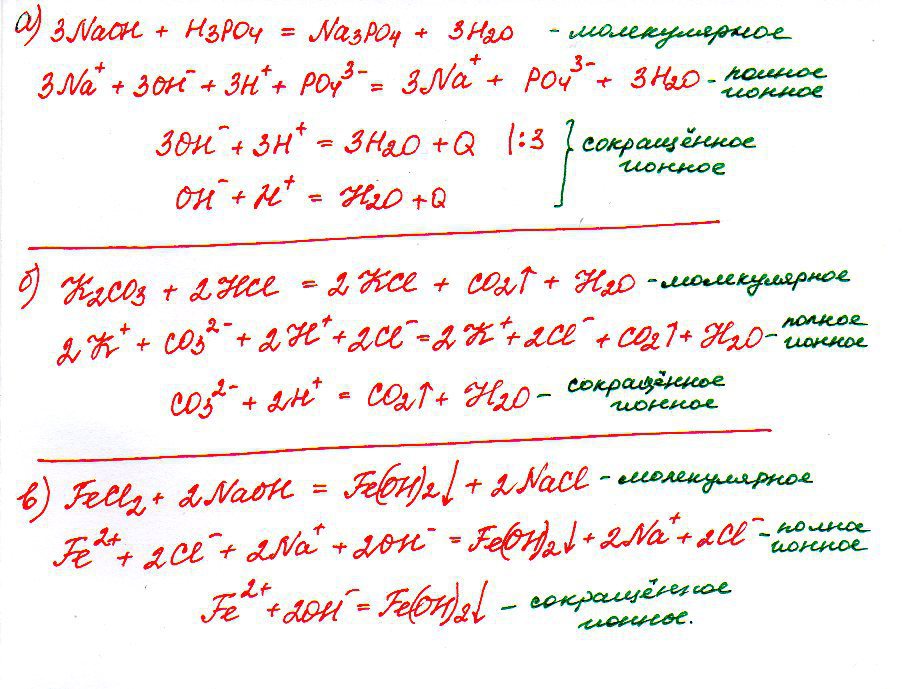 а) 3NaOH + H3PO4 = Na3PO4 + 3H2O - молекулярное
3Na⁺ + 3OH⁻ + 3H⁺ + PO4³⁻ = 3Na⁺ + PO4³⁻ + 3H2O - полное ионное
3OH⁻ + 3H⁺ = 3H2O + Q |:3 } сокращённое ионное
OH⁻ + H⁺ = H2O + Q
б) K2CO3 + 2HCl = 2KCl + CO2↑ + H2O - молекулярное
2K⁺ + CO3²⁻ + 2H⁺ + 2Cl⁻ = 2K⁺ + 2Cl⁻ + CO2↑ + H2O - полное ионное
CO3²⁻ + 2H⁺ = CO2↑ + H2O - сокращённое ионное
в) FeCl2 + 2NaOH = Fe(OH)2↓ + 2NaCl - молекулярное
Fe²⁺ + 2Cl⁻ + 2Na⁺ + 2OH⁻ = Fe(OH)2↓ + 2Na⁺ + 2Cl⁻ - полное ионное
Fe²⁺ + 2OH⁻ = Fe(OH)2↓ - сокращённое ионное.